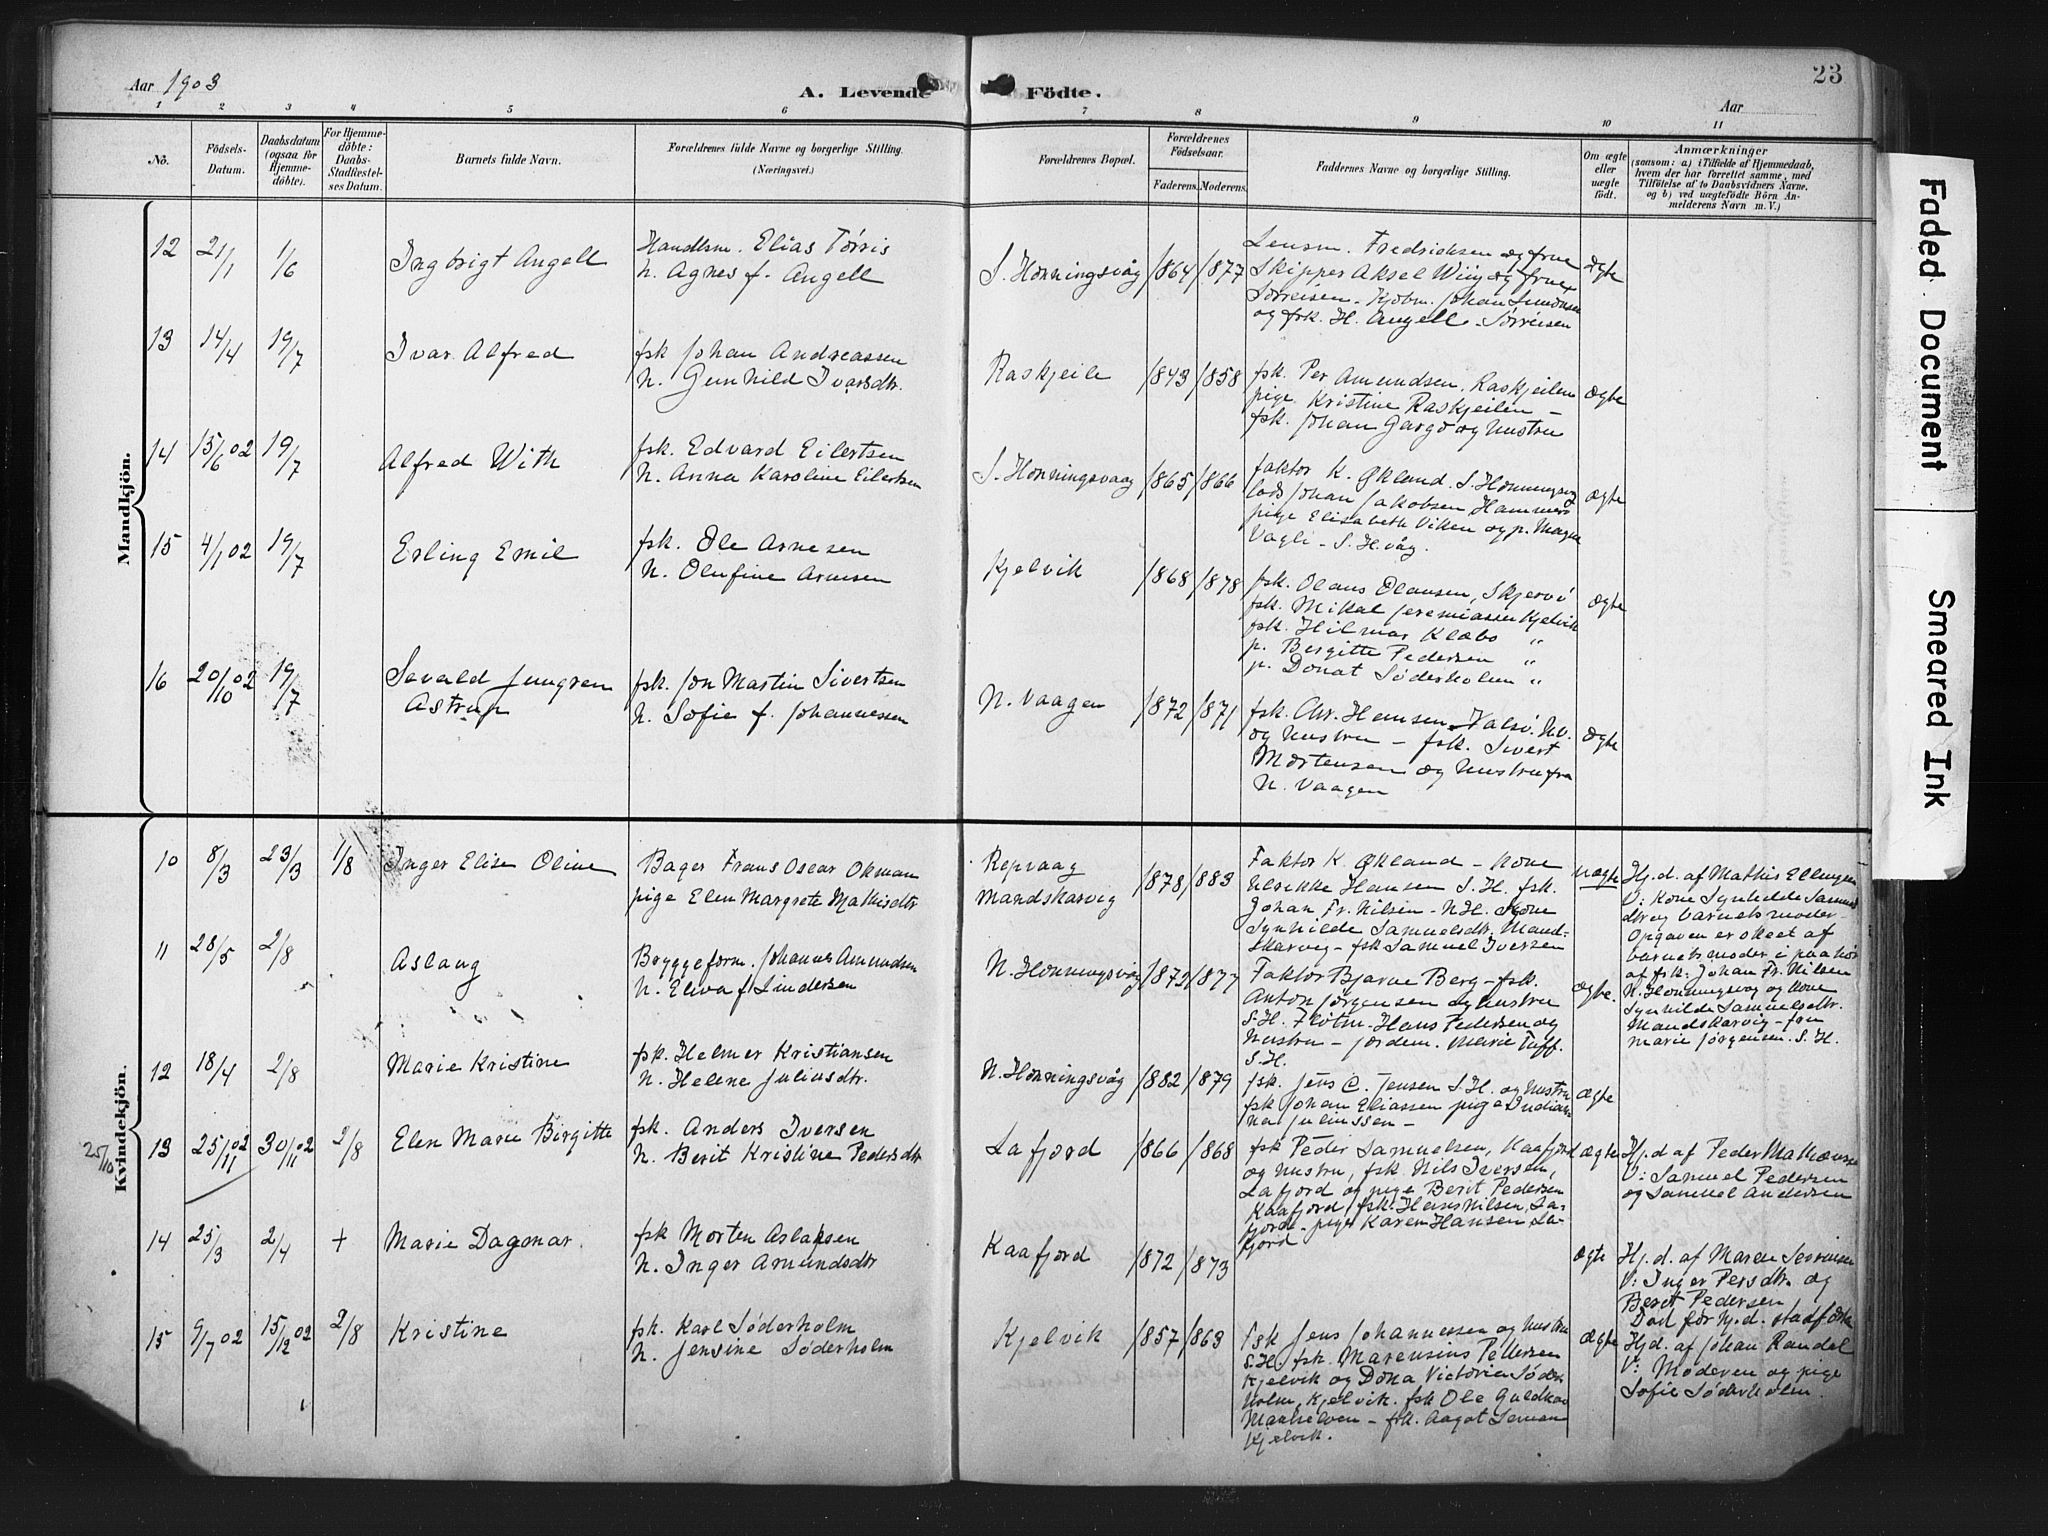 Aar 1903
A. Levende Födte.
23
Aar
1 2 3 4 5 6 7 8 9 10 11
No.
Födsels-Datum.
Daabsdatum (ogsaa for Hjemme-döbte).
For Hjemme-döbte: Daabs-Stadfæstel-ses Datum.
Barnets fulde Navn.
Forældrenes fulde Navne og borgerlige Stilling.
(Næringsvei.)
Forældrenes Bopæl.
Forældrenes Födselsaar.
Faderens. Moderens.
Faddernes Navne og borgerlige Stilling.
Om ægte eller uægte födt.
Anmærkninger
(saasom: a) i Tilfælde af Hjemmedaab, hvem der har forrettet samme, med Tilföielse af to Daabsvidners Navne, og b) ved uægtefödte Börn An-melderens Navn m. V.)
Mandkjön.
12 21/1 1/6 Ingbrigt Angell
Handlsm. Elias Tørris
h. Agnes f. Angell
S. Honningsvåg 1864 1877
Lensm. Fredriksen og frue
Skipper Aksel Wiig og frue
Sørreisen - Kjøbm. Johan Simonsen
og fsk. H. Angell - Sørreisen
ægte
13 14/4 19/7 Ivar Alfred
fsk Johan Andreassen
h. Gunhild Ivarsdtr.
Raskjeile 1843 1858
fsk. Per Amundsen. Raskjeilen
pige Kristine Raskjeilen -
fsk. Johan Gargo og hustru
ægte
14 15/6 02 19/7 Alfred With
fsk. Edvard Eilertsen
h. Anna Karoline Eilertsen
S. Honningsvaag 1865 1866
faktor K. Økland. S. Honningsvg
lods Johan Jakobsen Hammerf
pige Elisabeth Viken og p. Magna
Vagli - S. H.våg.
ægte
15 4/1 02 19/7 Erling Emil
fsk. Ole Arnesen
h. Olufine Arnesen
Kjelvik 1868 1878
fsk. Olaus Olausen, Skjervö
fsk. Mikal Jeremiassen Kjelvik
fsk. Hilmar Klæbo "
p. Bergitte Pedersen "
p. Donat Søderholm "
ægte
16 20/10 02 19/7 Sevald Jungren
Astrup
fsk. Jon Martin Sivertsen
h. Sofie f. Johannessen
N. Vaagen 1872 1871
fsk. Chr. Hansen
og hustru - fsk. Sivert
Mortensen og hustru fra
N. Vaagen
ægte
Kvindekjön.
10 8/3 23/3 1/8 Inger Elise Oline
Bager Frans Oscar Okman
pige Elen Margrete Mathisdtr
Repvaag
Mandskarvig
1878 1883
Faktor K. Økland - kone
Ulrikke Hansen S. H. fsk.
Johan Fr. Nilsen - N.H. kone
Synhilde Samuelsdtr, Mand-
skarvig - fsk Samuel Iversen
uægte
Hj. d. af Mathis Ellingsen
V: kone Synhilde Samuels
dtr og barnets moder -
Opgaven er skeet af
barnets moder i paahör
af fsk. Johan Fr. Nilsen
N. Honningsvog og kone
Synhilde Samuelsdtr.
Mandskarvig -
Marie Jørgensen. S. H.
11 28/5 2/8 Aslaug
Byggeform. Johannes Amundsen
h. Eliva f. Lindersen
N. Honningsvåg 1872 1877
Faktor Bjarne Berg - fsk.
Anton Jørgensen og hustru
S.H. Fløtm. Hans Pedersen og
hustru - jordem. Marie Tuff.
S.H.
ægte.
12 18/4 2/8 Marie Kristine
fsk. Helmer Kristiansen
h. Helene Juliusdtr.
N. Honningsvåg 1882 1879
fsk. Jens C. Jensen S. H. og hustru
fsk Johan Eliassen pige Indian-
na Juliussen -
ægte
25/10 13 25/11 02 30/11 02 2/8 Elen Marie Birgitte
fsk. Anders Iversen
h. Berit Kristine Pedersdtr
Lafjord 1866 1868
fsk Peder Samuelsen, Kaafjord
og hustru, fsk. Nils Iversen,
Lafjord og pige Berit Pedersen
Kaafjord, fsk. Hans Nilsen, La-
fjord - pige Karen Hansen La-
fjord
ægte
Hj. d af Peder Mathæussen
V: Samuel Pedersen
og Samuel Andersen
14 25/3 2/4 + Marie Dagmar.
fsk Morten Aslaksen
h. Inger Amundsdtr
Kaafjord 1872 1873
ægte
Hj. d. af Maren Iversen
V: Inger Persdtr. og
Berit Pedersen
Död för hj. d. stadfæstn
15 9/7 02 15/12 02 2/8 Kristine
fsk. Karl Søderholm
h. Jensine Søderholm
Kjelvik 1857 1863
fsk Jens Johannessen og hustru
S.H. fsk. Marensius Pedersen
Kjelvik og Dona Victoria Søder
holm, Kjelvik. fsk Ole Guldhav
Maalselven - fsk. Aagot Jensen
Kjelvik.
ægte
Hj. d. af Johan Randal
V: Moderen og pige
Sofie Søderholm.
Faded Document
Smeared Ink